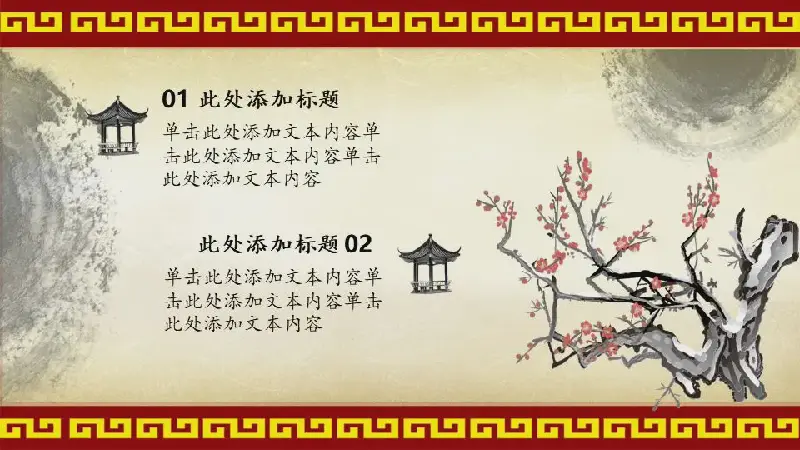 01 此处添加标题
单击此处添加文本内容单
击此处添加文本内容单击
此处添加文本内容
此处添加标题 02
单击此处添加文本内容单
击此处添加文本内容单击
此处添加文本内容